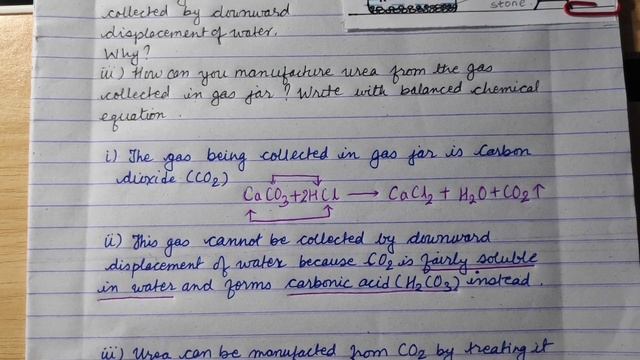 collected by downward
stone.
displacement of water.
Why?
iii) How can you manufacture urea from the gas
collected in gas jar? Write with balanced chemical
equation.
i) The gas being collected in gas jar is carbon
dioxide (CO2)
CaCO3+2HCl → CaCl2 + H2O + CO2↑
ii) This gas cannot be collected by downward
displacement of water because CO2 is fairly soluble
in water and forms carbonic acid (H2CO3) instead.
iii) Urea can be manufacted from CO2 by treating it